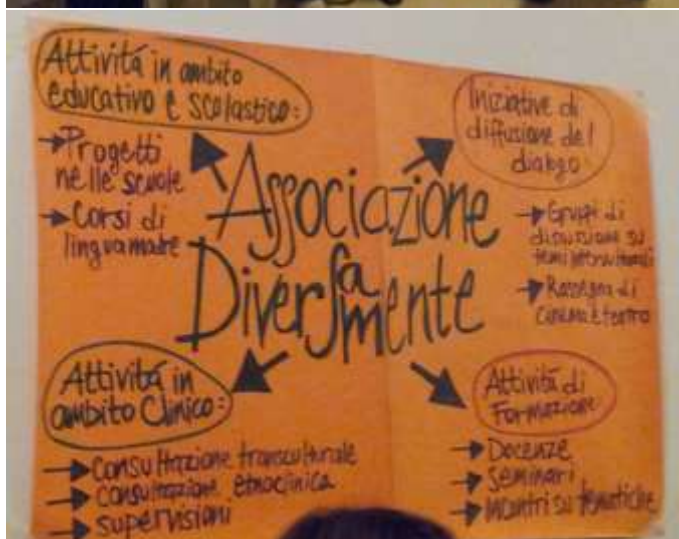 Attività in ambito
educativo e scolastico:
→ Progetti
nelle scuole
→ Corsi di
linguamadre
Iniziative di
diffusione del
dialogo
→ Gruppi di
discussione su
temi interculturali
→ Rassegna di
cinema e teatro
Associazione
Diversamente
Attività in
ambito Clinico:
→ Consultazione transculturale
→ consultazione etnoclinica
→ supervisioni
Attività di
Formazione
→ Docenze
→ Seminari
→ incontri su tematiche